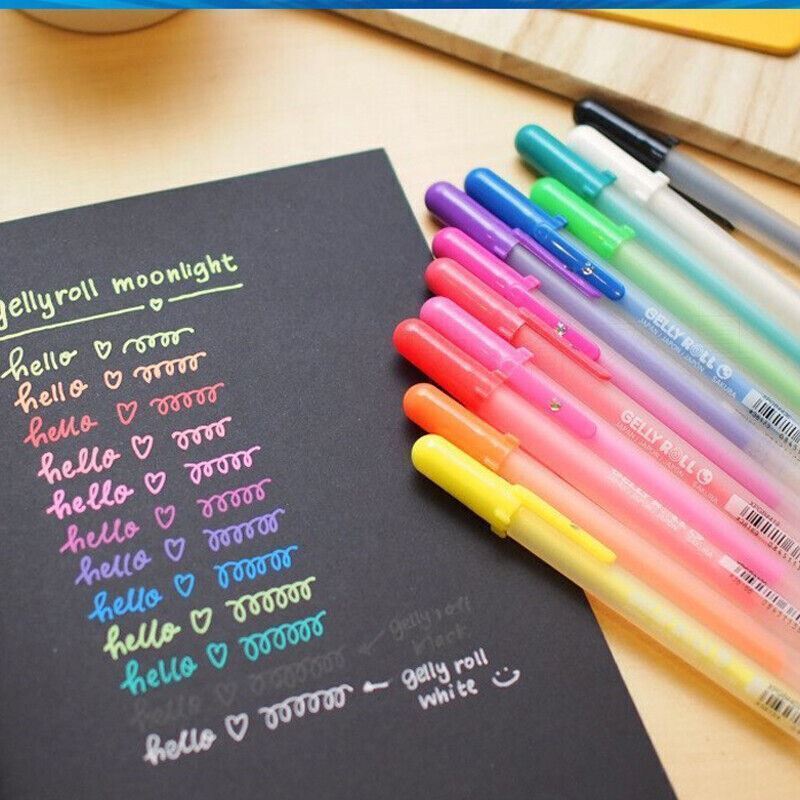 gellyroll moonlight
hello
hello
hello
hello
hello
hello
hello
hello
hello
hello
gelly roll
black
hello
gelly roll
white
GELLY ROLL
JAPAN / JAPON / JAPÓN SAKURA
GELLY ROLL
JAPAN / JAPON / JAPÓN SAKURA